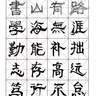 書山有路
學海無涯
勤能補拙
志存高遠